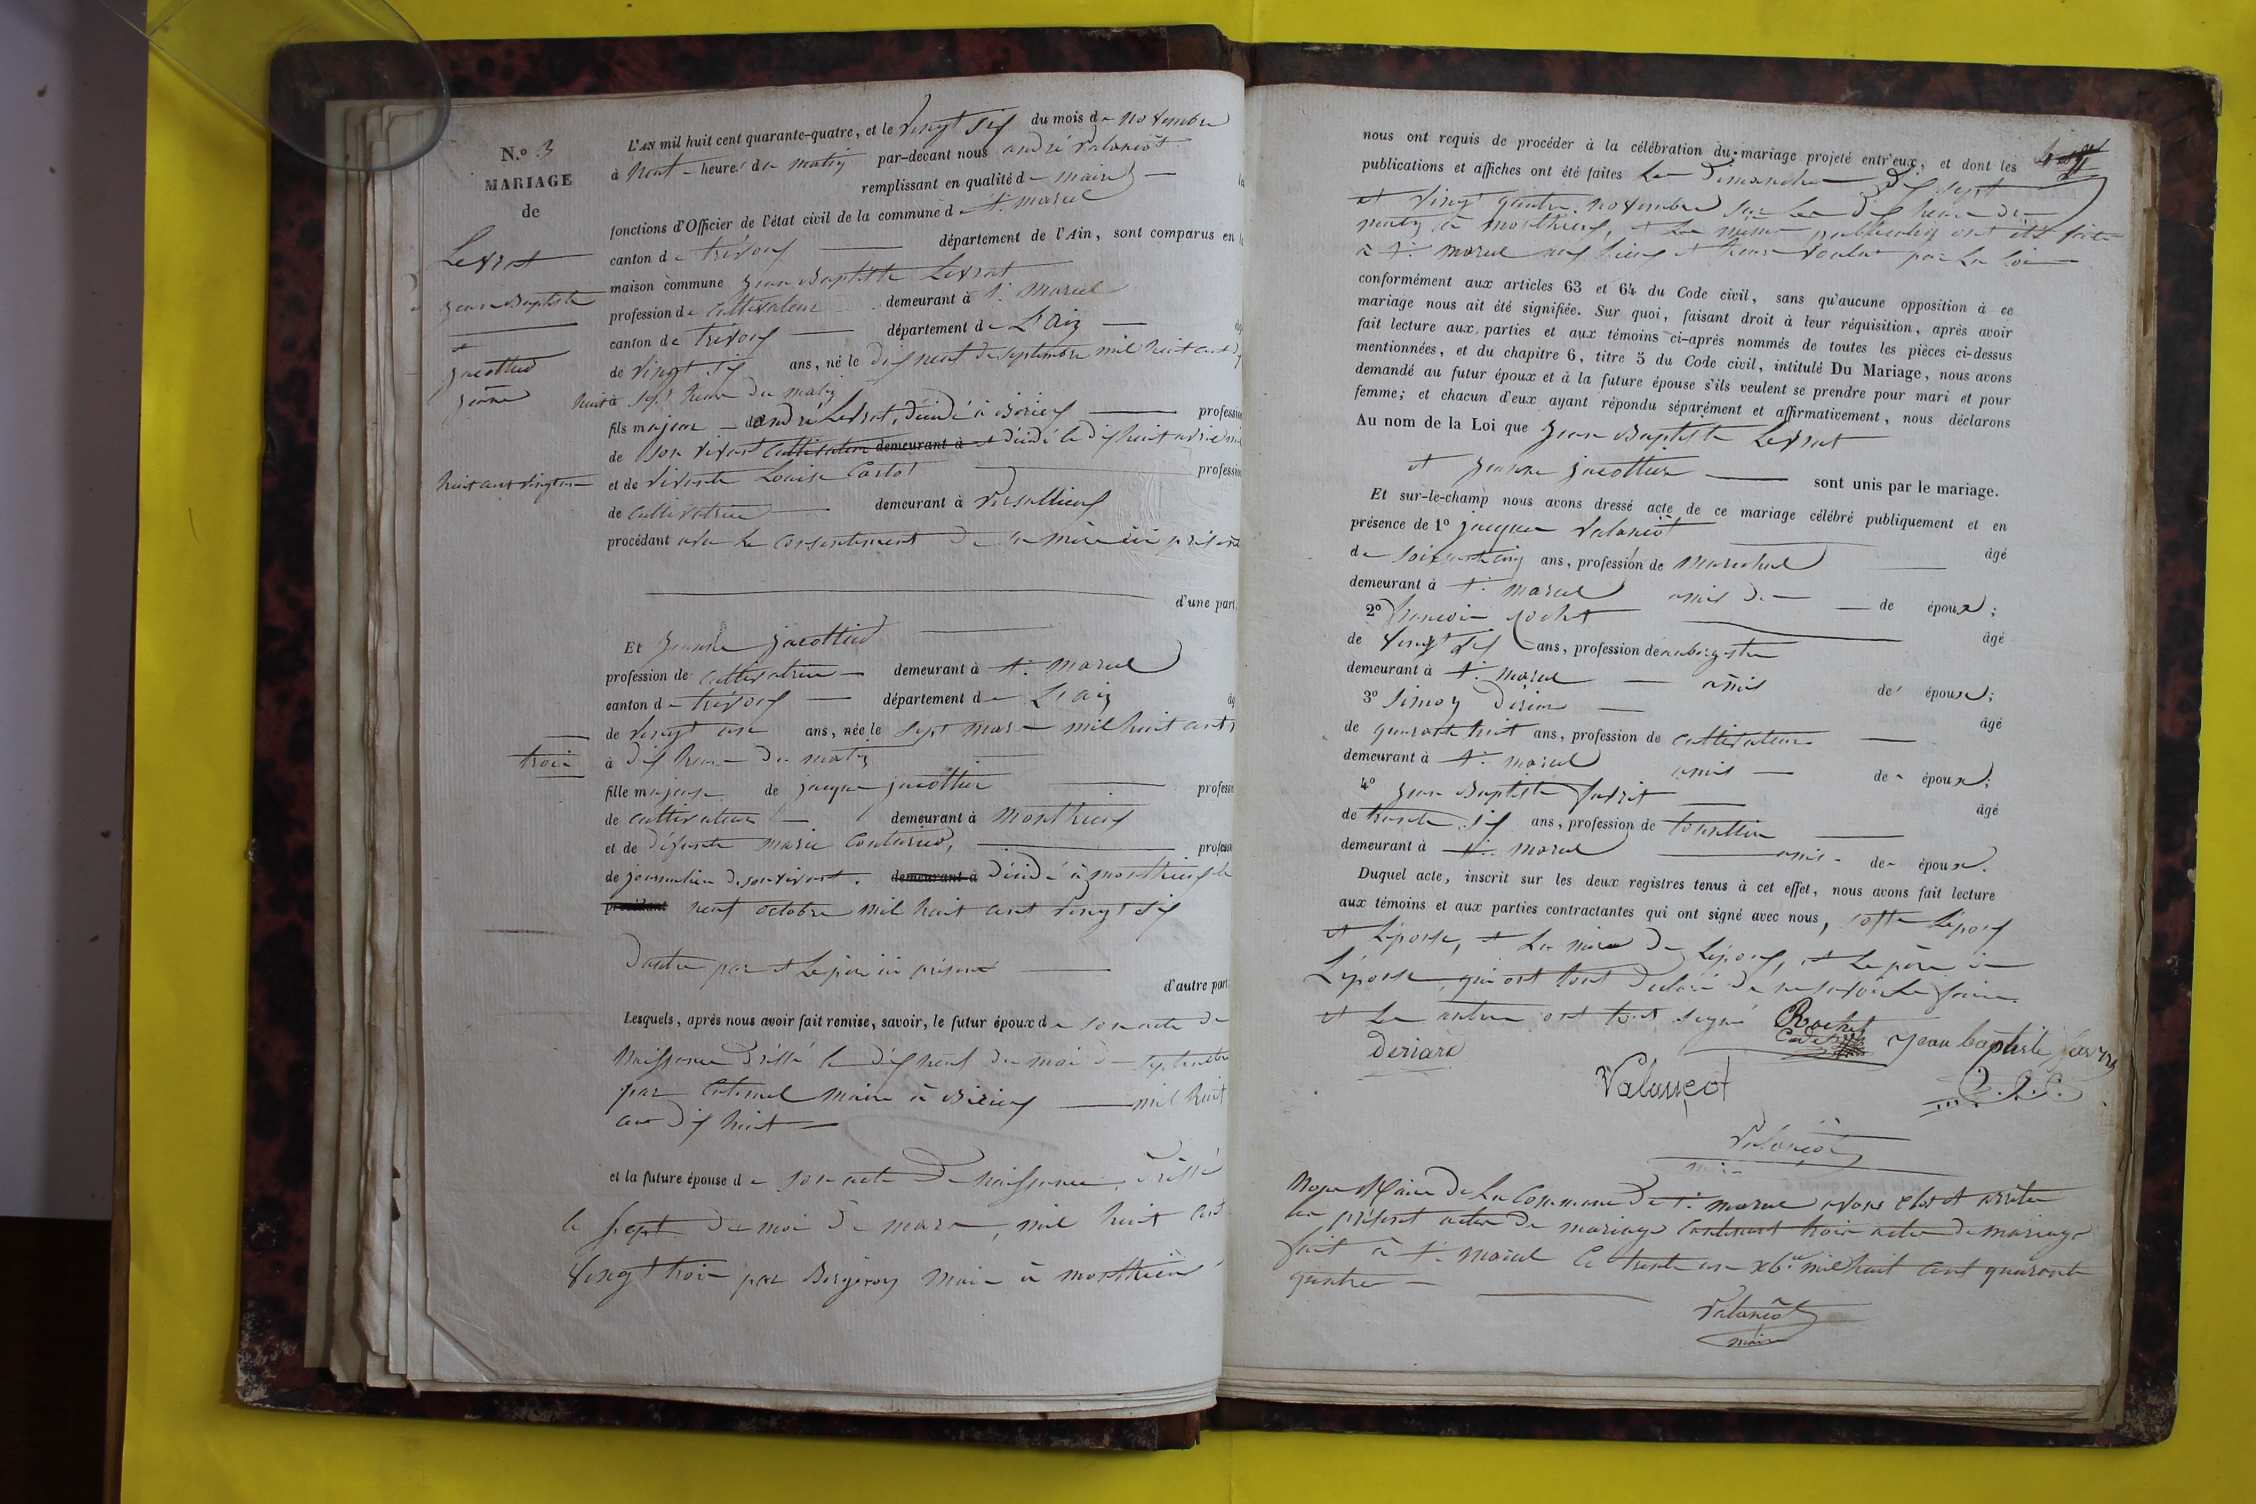 N.º 3
MARIAGE
de
Levrat
Jean Baptiste
et
Jacottier
Jeanne
huit cent vingt un
trois
L'AN mil huit cent quarante-quatre, et le vingt six du mois de novembre
à neuf heures du matin par-devant nous andré Valançot
remplissant en qualité de maire
fonctions d'Officier de l'état civil de la commune de St. marcel
canton de trévoux département de l'Ain, sont comparus en
maison commune Jean Baptiste Levrat
profession de cultivateur demeurant à St. Marcel
canton de trévoux département de L'ain
de vingt six ans, né le dix neuf de septembre mil huit cent dix
huit à sept heure du matin
fils majeur de andré Levrat, décédé à Birieux profession
de son vivant cultivateur demeurant à et décédé le dix huit avril mil
et de vivante Louise Cartot profession
de cultivatrice demeurant à Versailleux
procédant avec le consentement de sa mère ici présente
d'une part,
Et Jeanne Jacottier
profession de cultivatrice demeurant à St. marcel
canton de trévoux département de L'ain
de vingt un ans, née le sept mars mil huit cent
à dix heure du matin
fille majeure de jacque jacottier profession
de cultivateur demeurant à Monthieux
et de défunte marie profession
de journalière de son vivant. demeurant à décédé à monthieux le
procédant neuf octobre mil huit cent vingt six
d'autre par et le père ici présent
d'autre part
Lesquels, après nous avoir fait remise, savoir, le futur époux de son acte de
Naissance dressé le dix neuf du moi de septembre
par maire à Birieux mil huit
cent dix huit
et la future épouse de son acte de naissance, dressé
le sept du moi de mars, mil huit cent
vingt trois par Bergeron maire à monthieux
nous ont requis de procéder à la célébration du mariage projeté entr'eux, et dont les
publications et affiches ont été faites les dimanches dix sept
et vingt quatre novembre sur les dix heure du
matin à monthieux, et les même publication ont été faite
à St. marcel aux lieux et heure voulu par la loi
conformément aux articles 63 et 64 du Code civil, sans qu'aucune opposition à ce
mariage nous ait été signifiée. Sur quoi, faisant droit à leur réquisition, après avoir
fait lecture aux parties et aux témoins ci-après nommés de toutes les pièces ci-dessus
mentionnées, et du chapitre 6, titre 5 du Code civil, intitulé Du Mariage, nous avons
demandé au futur époux et à la future épouse s'ils veulent se prendre pour mari et pour
femme; et chacun d'eux ayant répondu séparément et affirmativement, nous déclarons
Au nom de la Loi que Jean Baptiste Levrat
et Jeanne jacottier sont unis par le mariage.
Et sur-le-champ nous avons dressé acte de ce mariage célébré publiquement et en
présence de 1º jacque Valançot âgé
de soixante cinq ans, profession de marechal
demeurant à St. marcel amis de de époux;
2º francois Rochet âgé
de vingt six ans, profession de aubergiste
demeurant à St. marcel amis de époux;
3º Simon âgé
de quarante huit ans, profession de cultivateur
demeurant à St. marcel amis de époux;
4º Jean Baptiste âgé
de trente six ans, profession de
demeurant à St. marcel amis de époux.
Duquel acte, inscrit sur les deux registres tenus à cet effet, nous avons fait lecture
aux témoins et aux parties contractantes qui ont signé avec nous, L'époux
et L'épouse, et La mère de L'époux, et Le père de
L'épouse, qui ont tout déclaré de ne savoir Le faire
et Les autre ont tout signé Rochet
Deriard
Jean baptiste
Valançot
Valançot
maire
Nous Maire de La Commune de St. marcel avons clos et arrêter
les présent actes de mariage contenant trois actes de mariage
fait à St. marcel le trente un Xbre mil huit cent quarante
quatre
Valançot
maire